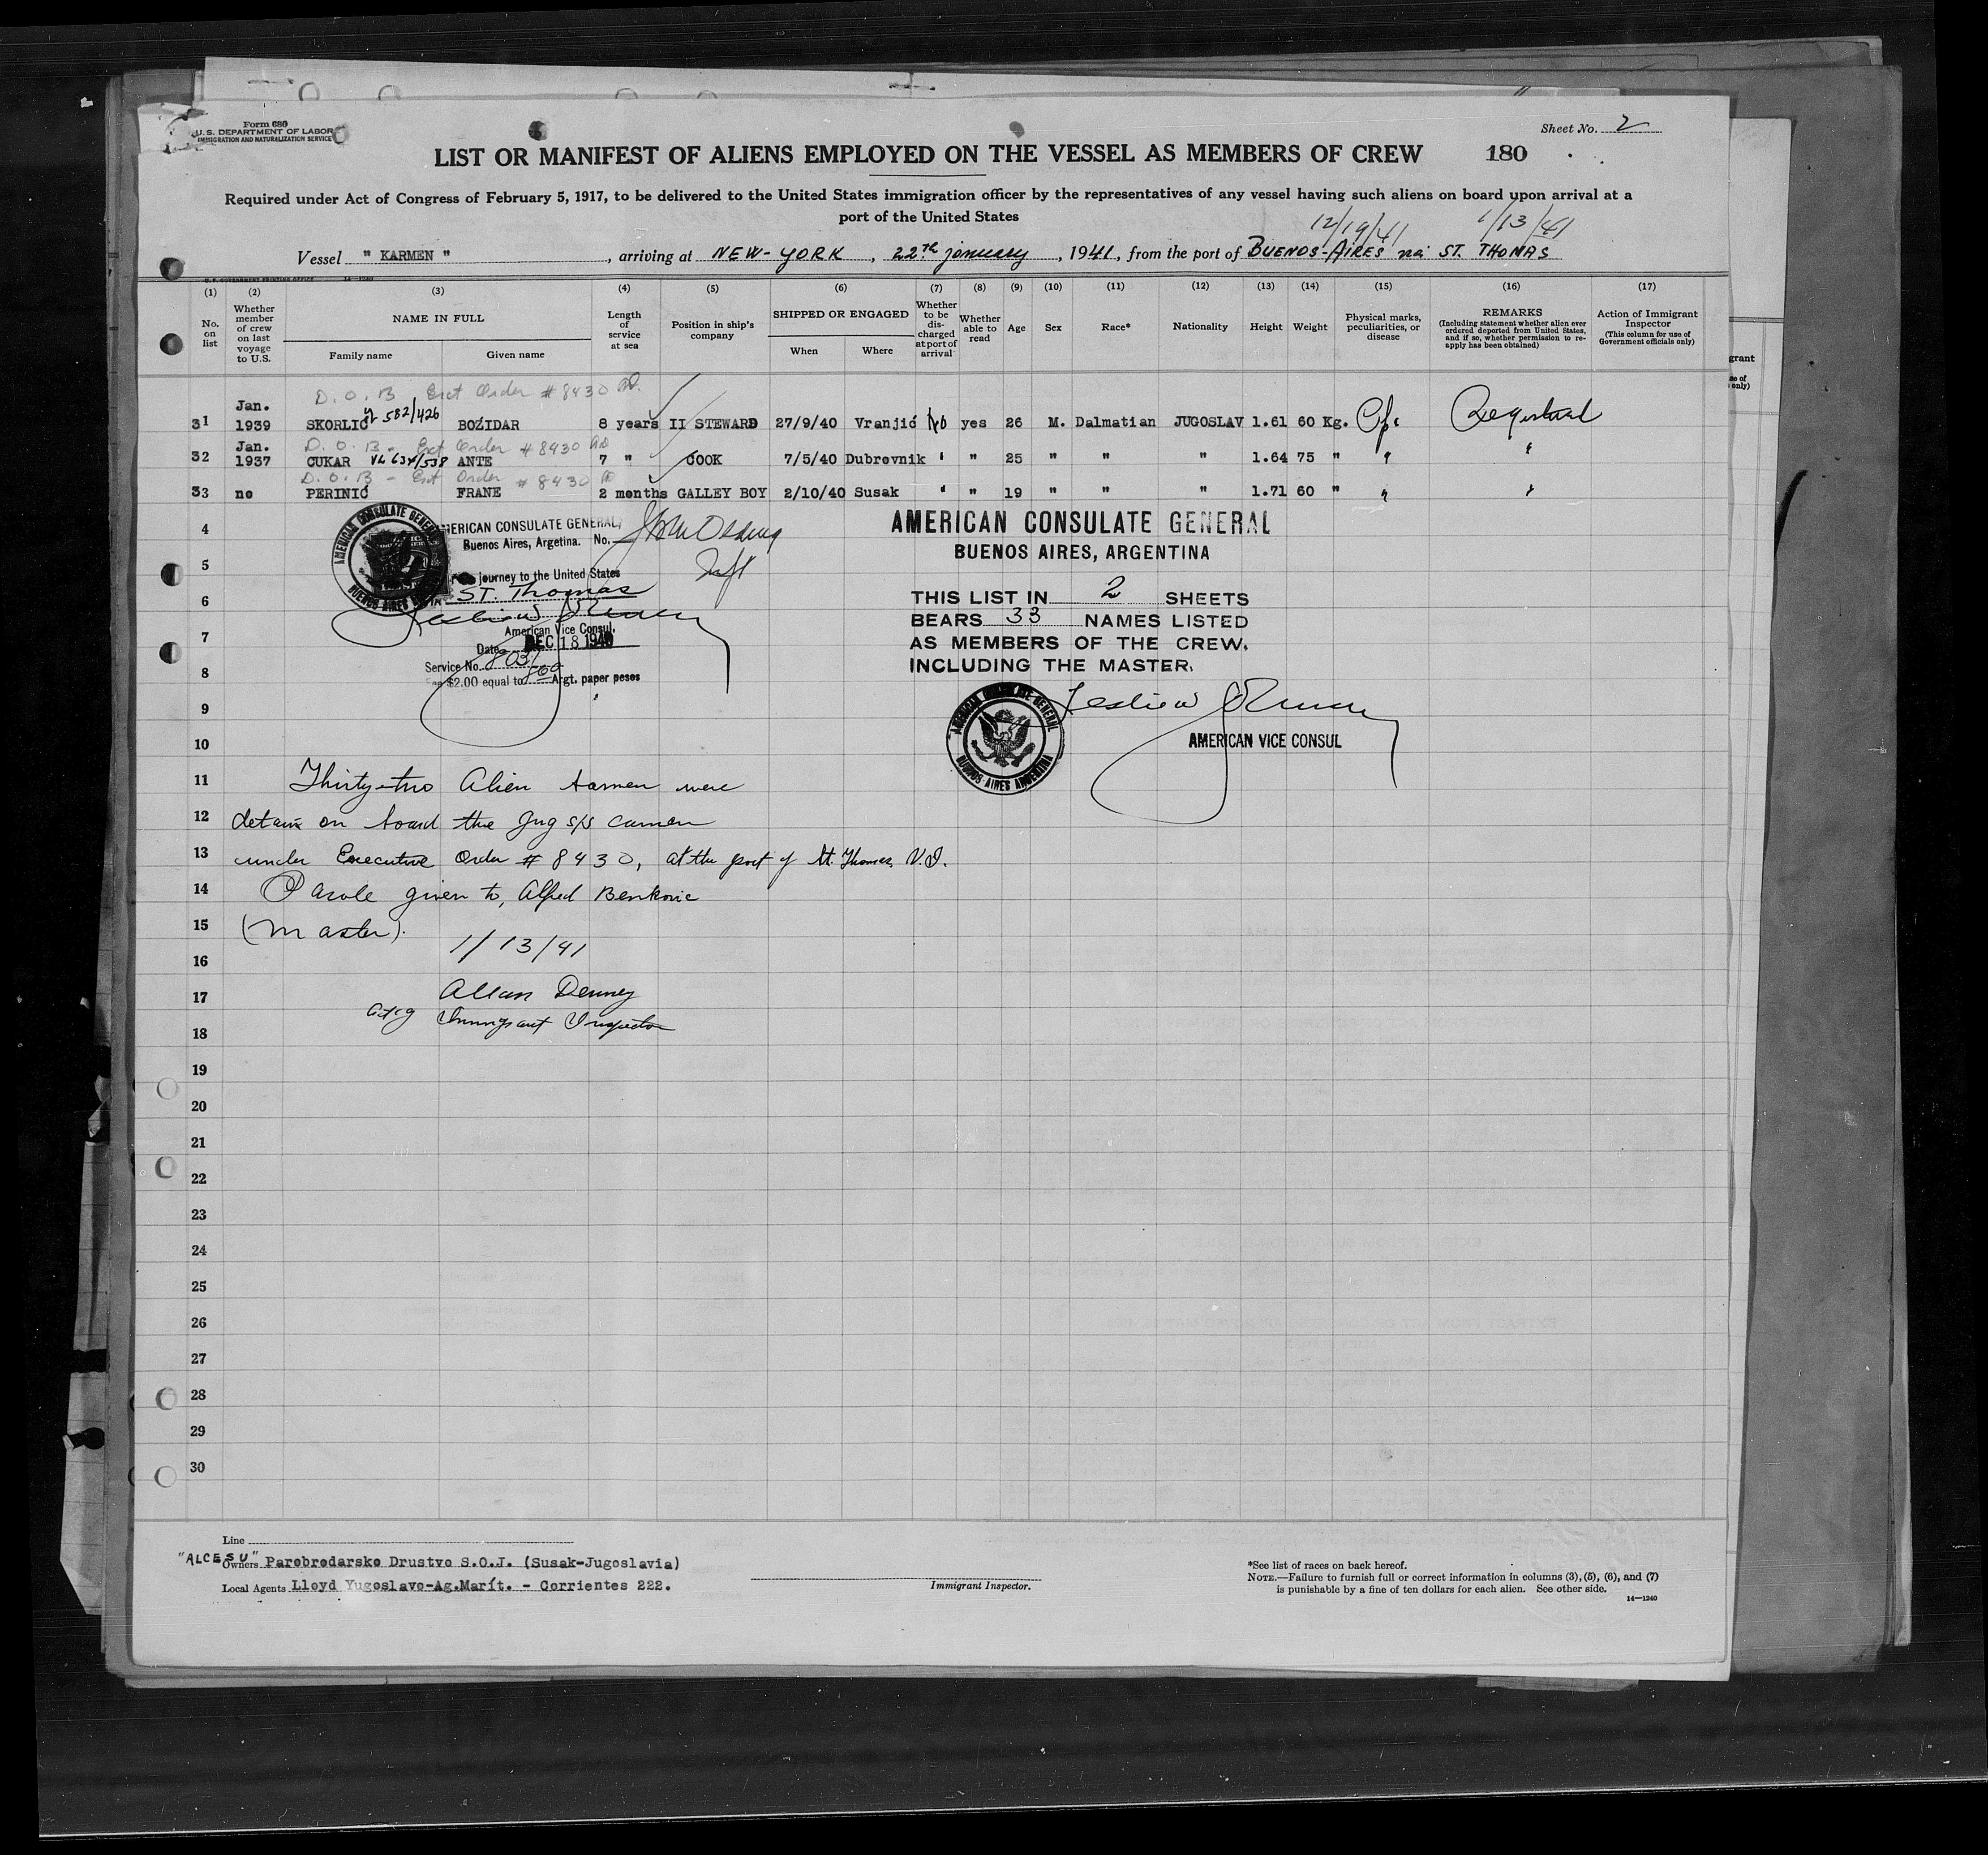 Form 680
U.S. DEPARTMENT OF LABOR
IMMIGRATION AND NATURALIZATION SERVICE
Sheet No. 2
LIST OR MANIFEST OF ALIENS EMPLOYED ON THE VESSEL AS MEMBERS OF CREW 180
Required under Act of Congress of February 5, 1917, to be delivered to the United States immigration officer by the representatives of any vessel having such aliens on board upon arrival at a
port of the United States
12/19/41 1/13/41
Vessel " KARMEN ", arriving at NEW-YORK, 22th january, 1941, from the port of BUENOS-AIRES via ST. THOMAS
U.S. GOVERNMENT PRINTING OFFICE 14-1240
(1) (2) (3) (4) (5) (6) (7) (8) (9) (10) (11) (12) (13) (14) (15) (16) (17)
No. on list
Whether member of crew on last voyage to U.S.
NAME IN FULL
Family name Given name
Length of service at sea
Position in ship's company
SHIPPED OR ENGAGED
When Where
Whether to be discharged at port of arrival
Whether able to read
Age
Sex
Race*
Nationality
Height
Weight
Physical marks, peculiarities, or disease
REMARKS
(Including statement whether alien ever ordered deported from United States, and if so, whether permission to reapply has been obtained)
Action of Immigrant Inspector
(This column for use of Government officials only)
D.O.B Ext Order # 8430 AD.
31 Jan. 1939 SKORLIĆ 582/426 BOŹIDAR 8 years II STEWARD 27/9/40 Vranjić No yes 26 M. Dalmatian JUGOSLAV 1.61 60 Kg. Registered
D.O.B - Ext Order # 8430 AD
32 Jan. 1937 CUKAR VL 634/538 ANTE 7 " COOK 7/5/40 Dubrovnik " " 25 " " " 1.64 75 " " "
D.O.B - Ext Order # 8430 AD
33 no PERINIĆ FRANE 2 months GALLEY BOY 2/10/40 Susak " " 19 " " " 1.71 60 " " "
AMERICAN CONSULATE GENERAL
BUENOS AIRES
AMERICAN CONSULATE GENERAL,
Buenos Aires, Argetina. No.
journey to the United States
ST. Thomas
American Vice Consul.
Date DEC 18 1940
Service No. 8031
Fee $2.00 equal to 869 Argt. paper pesos
AMERICAN CONSULATE GENERAL
BUENOS AIRES, ARGENTINA
THIS LIST IN 2 SHEETS
BEARS 33 NAMES LISTED
AS MEMBERS OF THE CREW.
INCLUDING THE MASTER.
AMERICAN CONSULATE GENERAL
BUENOS AIRES ARGENTINA
AMERICAN VICE CONSUL
4
5
6
7
8
9
10
11 Thirty-two Alien seamen were
12 detain on board the Jug s/s Carmen
13 under Executive Order # 8430, at the port of St. Thomas, V.I.
14 Parole given to, Alfred Benkovic
15 (Master).
16 1/13/41
17 Allan Denney
18 Act'g Immigrant Inspector
19
20
21
22
23
24
25
26
27
28
29
30
Line
"ALCESU"
Owners Parobrodarsko Drustvo S.O.J. (Susak-Jugoslavia)
Local Agents Lloyd Yugoslavo-Ag.Marít. - Corrientes 222.
Immigrant Inspector.
*See list of races on back hereof.
NOTE.—Failure to furnish full or correct information in columns (3), (5), (6), and (7)
is punishable by a fine of ten dollars for each alien. See other side.
14-1240